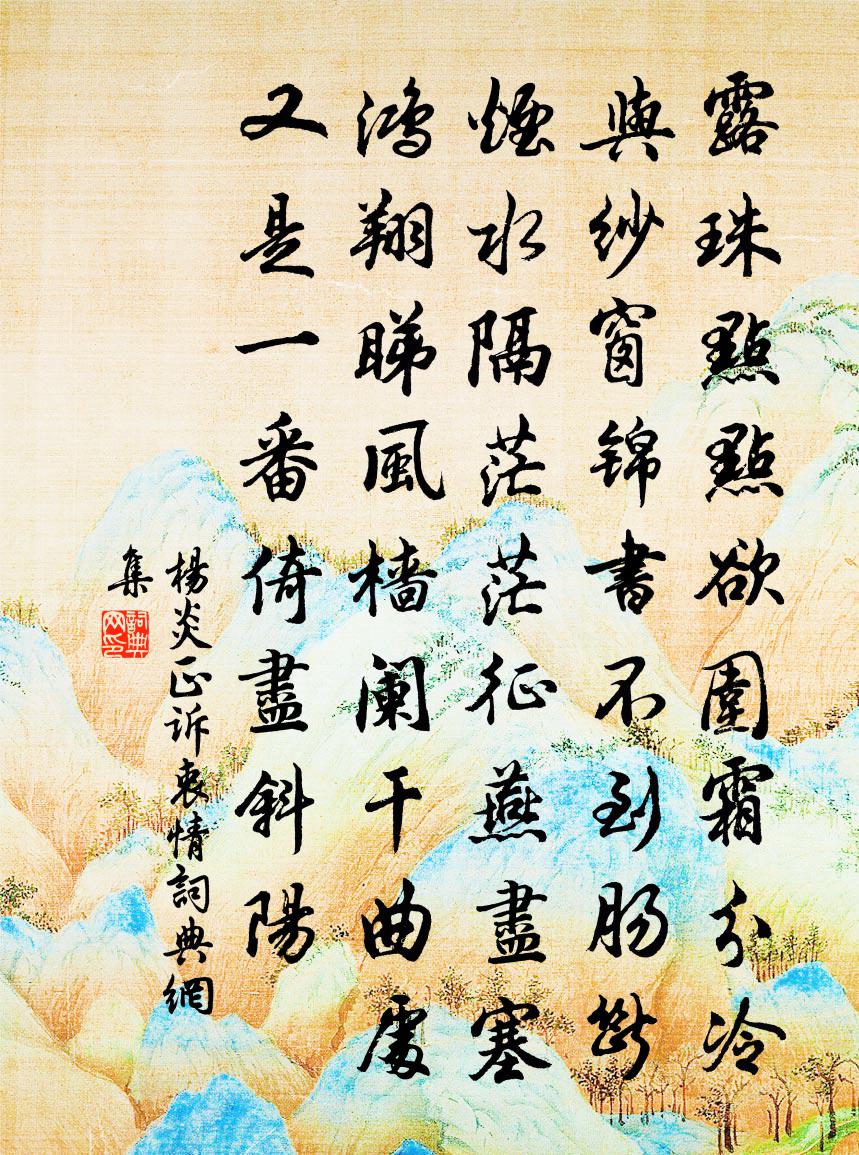 露珠點點欲團霜分冷
與紗窗锦書不到肠斷
煙水隔茫茫征燕盡塞
鸿翔睇風檣阑干曲處
又是一番倚盡斜陽
楊炎正诉衷情詞典網
集
詞典网印